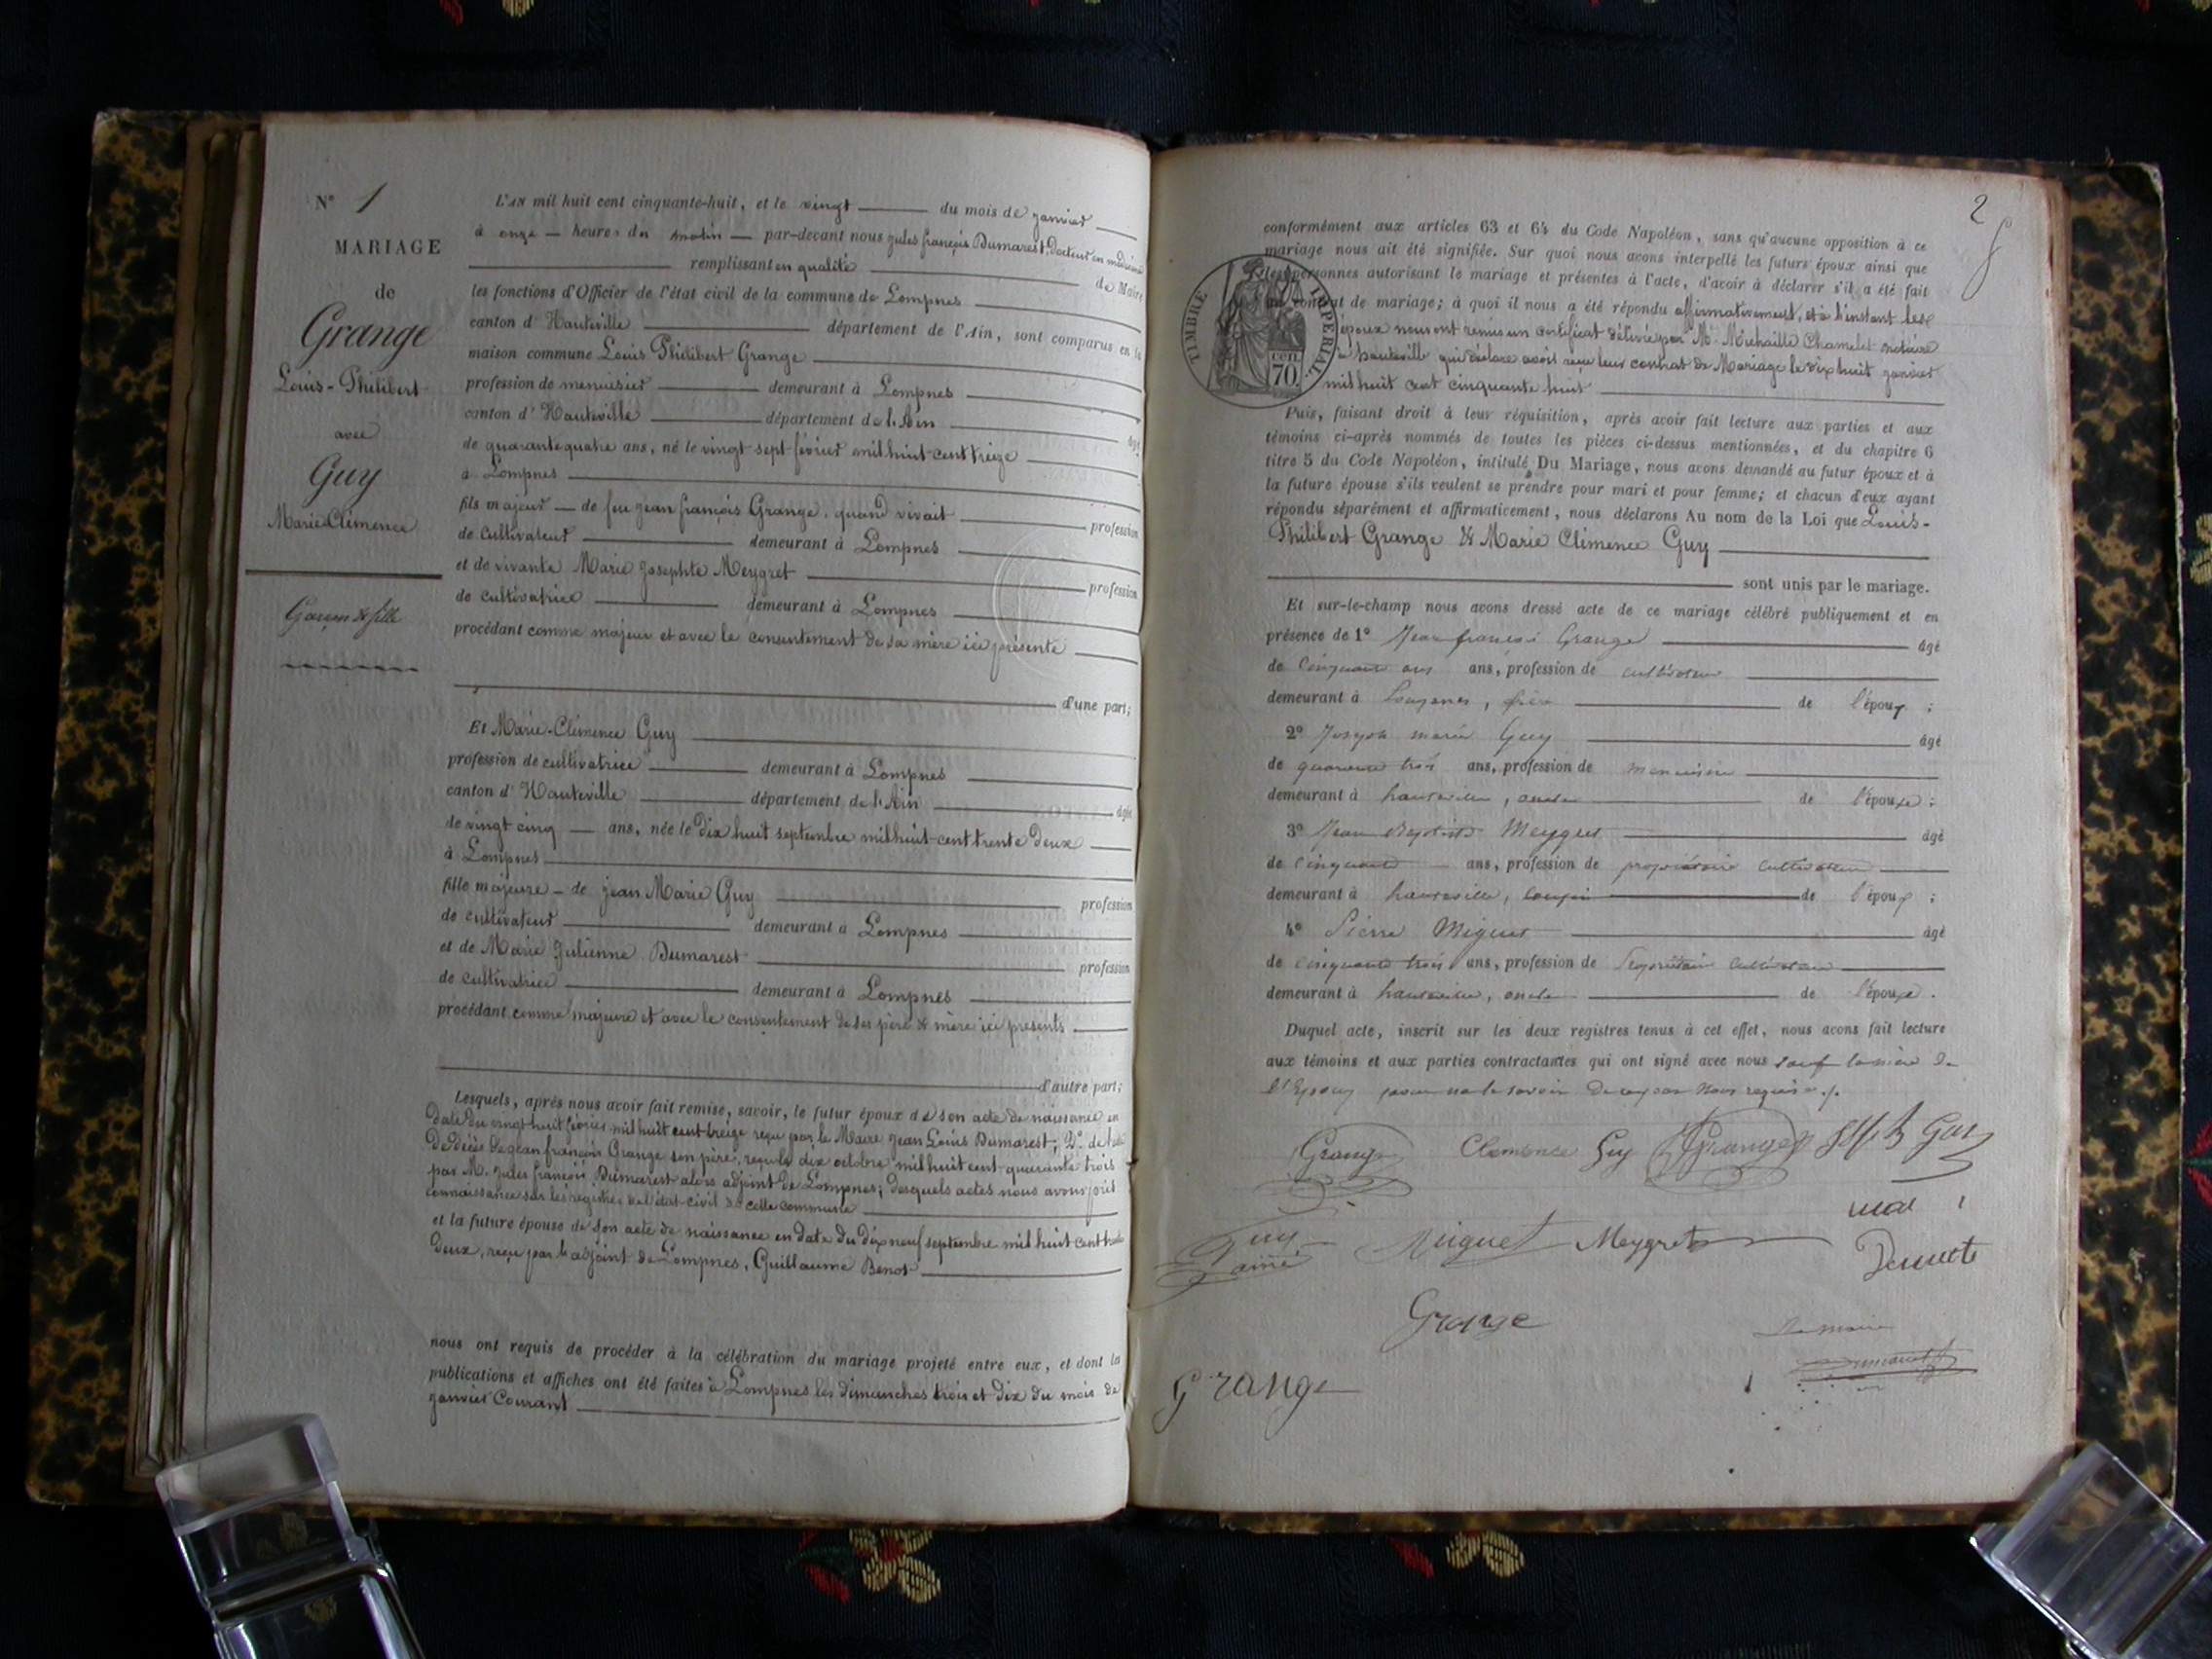 N° 1
MARIAGE
de
Grange
Louis-Philibert
avec
Guy
Marie-Clémence
Garçon & fille
L'AN mil huit cent cinquante-huit, et le vingt du mois de janvier
à onze heures du matin par-devant nous jules françois Dumarest, Docteur en médecine
remplissant en qualité de Maire
les fonctions d'Officier de l'état civil de la commune de Lompnes
canton d'Hauteville département de l'Ain, sont comparus en la
maison commune Louis Philibert Grange
profession de menuisier demeurant à Lompnes
canton d'Hauteville département de l'Ain âgé
de quarante quatre ans, né le vingt-sept février mil huit-cent treize
à Lompnes
fils majeur de feu jean françois Grange, quand vivait profession
de cultivateur demeurant à Lompnes
et de vivante Marie josephte Meygret profession
de cultivatrice demeurant à Lompnes
procédant comme majeur et avec le consentement de sa mère ici présente
d'une part;
Et Marie-Clémence Guy
profession de cultivatrice demeurant à Lompnes
canton d'Hauteville département de l'Ain âgée
de vingt cinq ans, née le dix huit septembre mil huit-cent trente deux
à Lompnes
fille majeure de jean Marie Guy profession
de cultivateur demeurant à Lompnes
et de Marie julienne Dumarest profession
de cultivatrice demeurant à Lompnes
procédant comme majeure et avec le consentement de ses père & mère ici présents
d'autre part;
Lesquels, après nous avoir fait remise, savoir, le futur époux de son acte de naissance en
date du vingt huit février mil huit cent treize reçu par le Maire jean Louis Dumarest; 2° de
décès de jean françois Grange son père, reçu le dix octobre mil huit cent-quarante trois
par M. jules françois Dumarest alors adjoint de Lompnes; desquels actes nous avons pris
connaissance sur les registres de l'état-civil de cette commune
et la future épouse de son acte de naissance en date du dix neuf septembre mil huit cent trente
deux, reçu par l'adjoint de Lompnes, Guillaume Benot
nous ont requis de procéder à la célébration du mariage projeté entre eux, et dont les
publications et affiches ont été faites à Lompnes les dimanches trois et dix du mois de
janvier Courant
2
conformément aux articles 63 et 64 du Code Napoléon, sans qu'aucune opposition à ce
mariage nous ait été signifiée. Sur quoi nous avons interpellé les futurs époux ainsi que
les personnes autorisant le mariage et présentes à l'acte, d'avoir à déclarer s'il a été fait
un contrat de mariage; à quoi il nous a été répondu affirmativement, et à l'instant les
époux nous ont remis un certificat délivré par M. Michaille Chamelet notaire
à hauteville qui déclare avoir reçu leur contrat de Mariage le dix huit janvier
mil huit cent cinquante huit
TIMBRE IMPERIAL
70 cen.
Puis, faisant droit à leur réquisition, après avoir fait lecture aux parties et aux
témoins ci-après nommés de toutes les pièces ci-dessus mentionnées, et du chapitre 6
titre 5 du Code Napoléon, intitulé Du Mariage, nous avons demandé au futur époux et à
la future épouse s'ils veulent se prendre pour mari et pour femme; et chacun d'eux ayant
répondu séparément et affirmativement, nous déclarons Au nom de la Loi que Louis-
Philibert Grange & Marie Clémence Guy
sont unis par le mariage.
Et sur-le-champ nous avons dressé acte de ce mariage célébré publiquement et en
présence de 1° Jean françois Grange âgé
de cinquante ans ans, profession de cultivateur
demeurant à Lompnes, frère de l'époux ;
2° Joseph marie Guy âgé
de quarante trois ans, profession de menuisier
demeurant à hauteville, oncle de l'épouse ;
3° Jean Baptiste Meygret âgé
de cinquante ans, profession de propriétaire cultivateur
demeurant à hauteville, cousin de l'époux ;
4° Pierre Miguet âgé
de cinquante trois ans, profession de propriétaire cultivateur
demeurant à hauteville, oncle de l'épouse.
Duquel acte, inscrit sur les deux registres tenus à cet effet, nous avons fait lecture
aux témoins et aux parties contractantes qui ont signé avec nous sauf la mère de
l'Epoux pour ne le savoir de ce par nous requise
Grange Clemence Guy Grange
Guy ainé Miguet Meygret
Grange
Le maire
Grange Dumarest